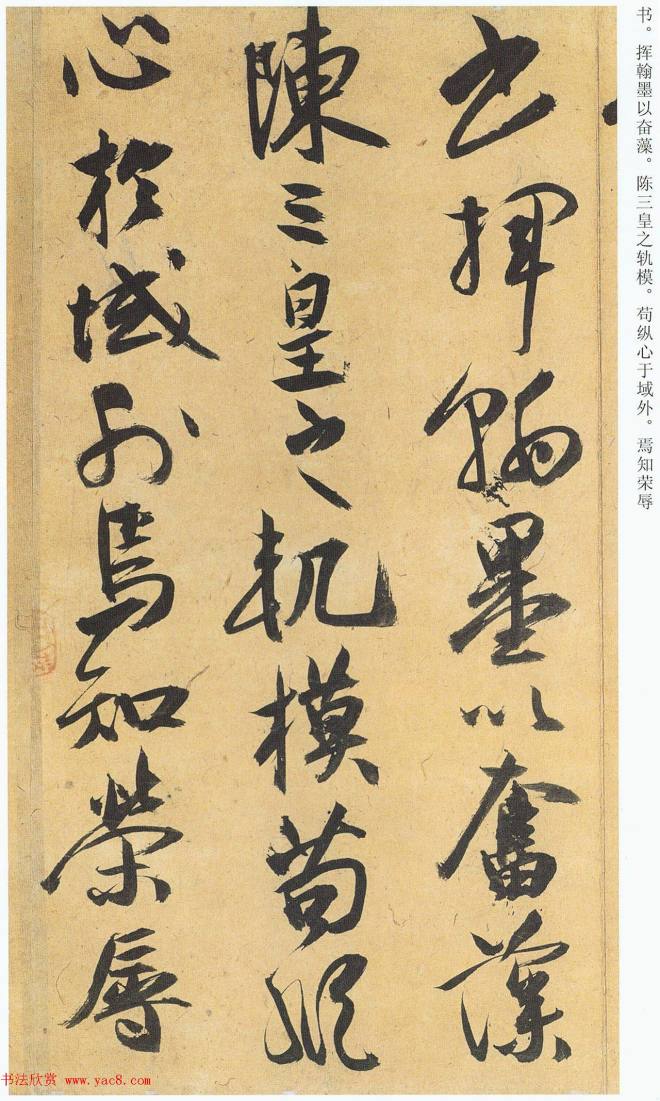 书。挥翰墨以奋藻。陈三皇之轨模。苟纵心于域外。焉知荣辱
书揮翰墨以奮藻
陳三皇之軌模苟縱
心於域外焉知榮辱
书法欣赏 www.yac8.com